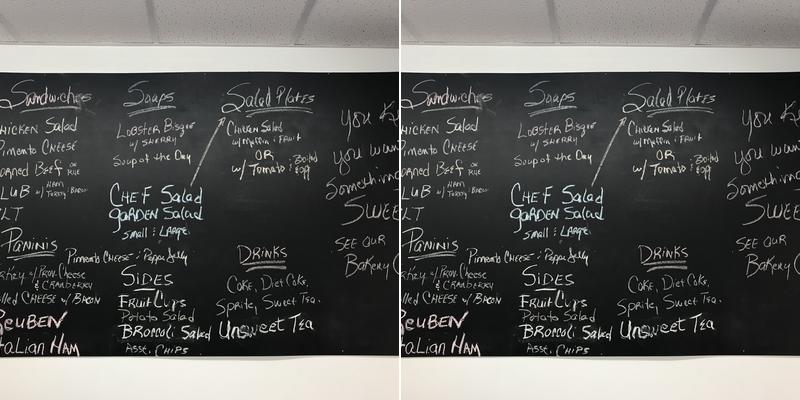 Sandwiches
HICKEN Salad
Pimento CHEESE
ORNED BEEF ON RYE
LUB w/ HAM TURKEY & BACON
LT
PANINIS
Pimento CHEESE & Pepper Jelly
w/ Prov. Cheese & CRANBERRY
lled CHEESE w/ BACON
REUBEN
taLian HAM
Soups
LOBSTER Bisque w/ SHERRY
Soup of the Day
CHEF Salad
gARDEN Salad
Small & LARGE
SIDES
FRUIT CUPS
Potato Salad
BROCCOLI Salad
ASST. CHIPS
Salad PLATES
CHICKEN Salad
w/ Muffin & FRUIT
OR
w/ Tomato & Boiled Egg
DRINKS
COKE, DIET COKE,
Sprite, Sweet Tea.
Unsweet TEA
you
you wan
Something
SWEE
SEE OUR
BAKERY
Sandwiches
HICKEN Salad
Pimento CHEESE
ORNED BEEF ON RYE
LUB w/ HAM TURKEY & BACON
LT
PANINIS
Pimento CHEESE & Pepper Jelly
w/ Prov. Cheese & CRANBERRY
lled CHEESE w/ BACON
REUBEN
taLian HAM
Soups
LOBSTER Bisque w/ SHERRY
Soup of the Day
CHEF Salad
gARDEN Salad
Small & LARGE
SIDES
FRUIT CUPS
Potato Salad
BROCCOLI Salad
ASST. CHIPS
Salad PLATES
CHICKEN Salad
w/ Muffin & FRUIT
OR
w/ Tomato & Boiled Egg
DRINKS
COKE, DIET COKE,
Sprite, Sweet Tea.
Unsweet TEA
you
you wan
Something
SWEE
SEE OUR
BAKERY